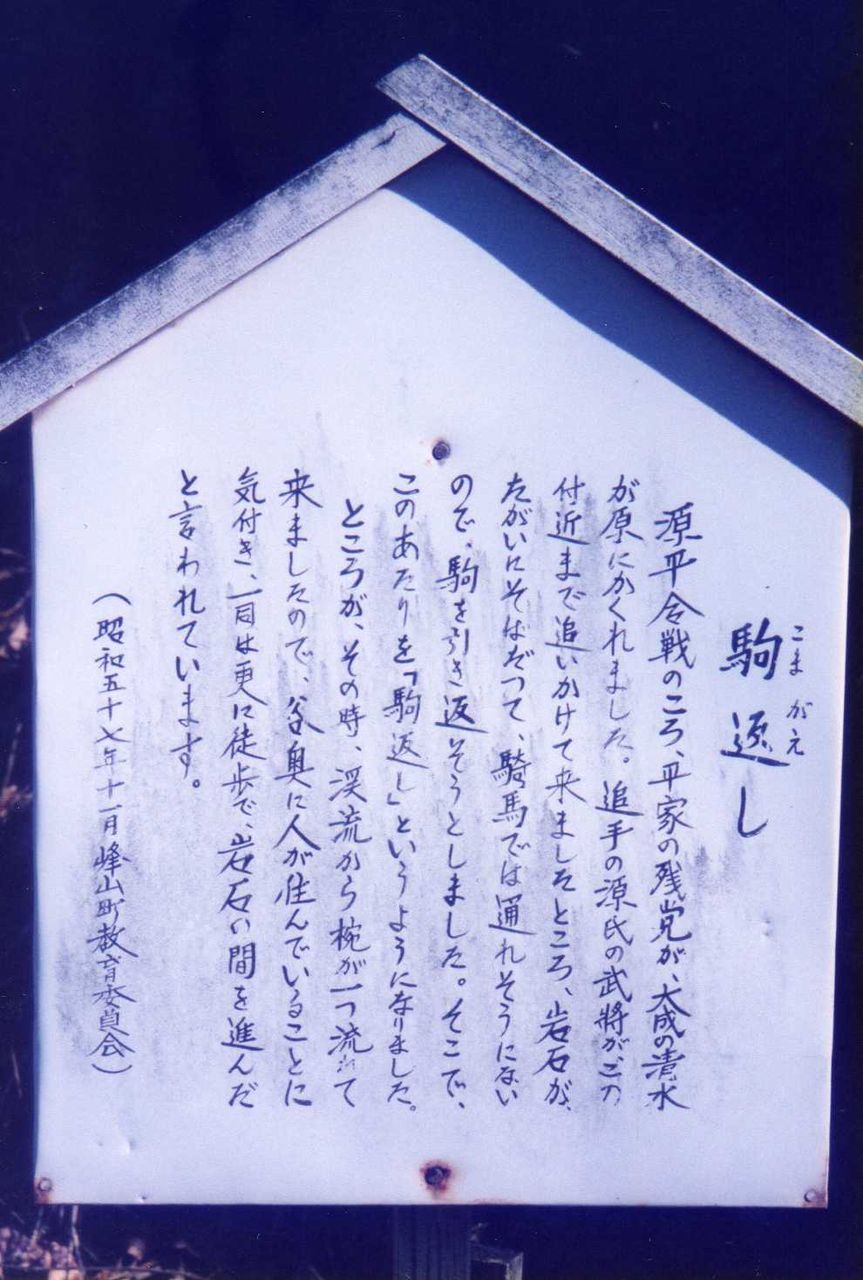 こまがえ
駒返し
源平合戦のころ、平家の残党が、大成の清水
が原にかくれました。追手の源氏の武将がこの
付近まで追いかけて来ましたところ、岩石が、
たがいにそばだつて、騎馬では通れそうにない
ので、駒を引き返そうとしました。そこで、
このあたりを「駒返し」というようになりました。
ところが、その時、渓流から椀が一つ流れて
来ましたので、谷奥に人が住んでいることに
気付き、一同は更に徒歩で、岩石の間を進んだ
と言われています。
(昭和五十七年十一月 峰山町教育委員会)